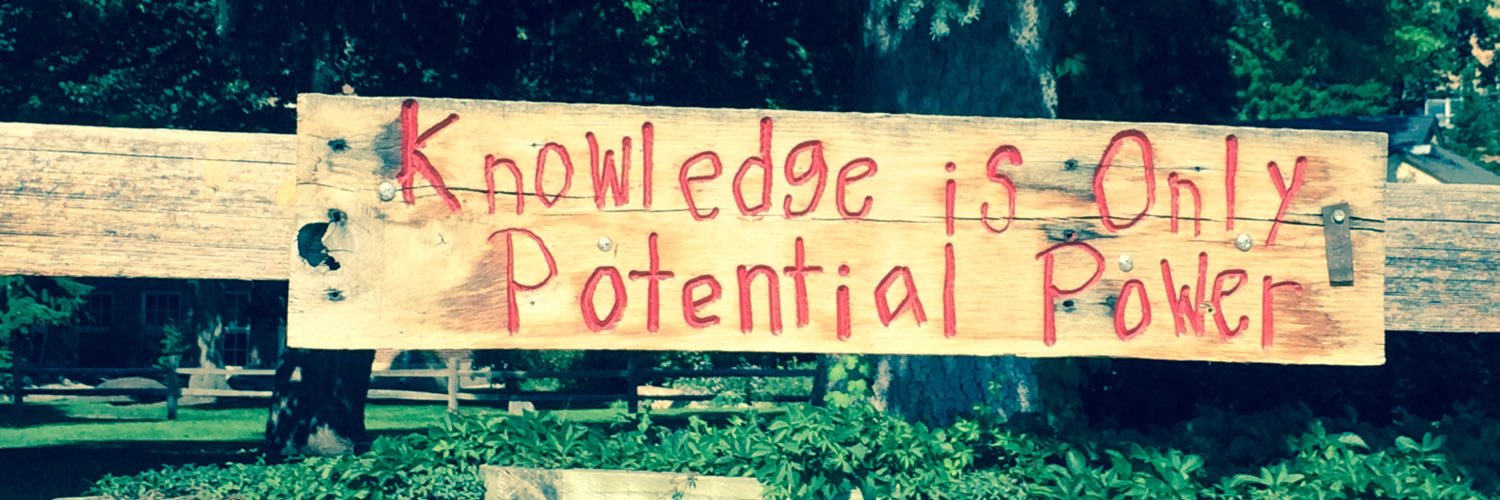 Knowledge is Only
Potential Power